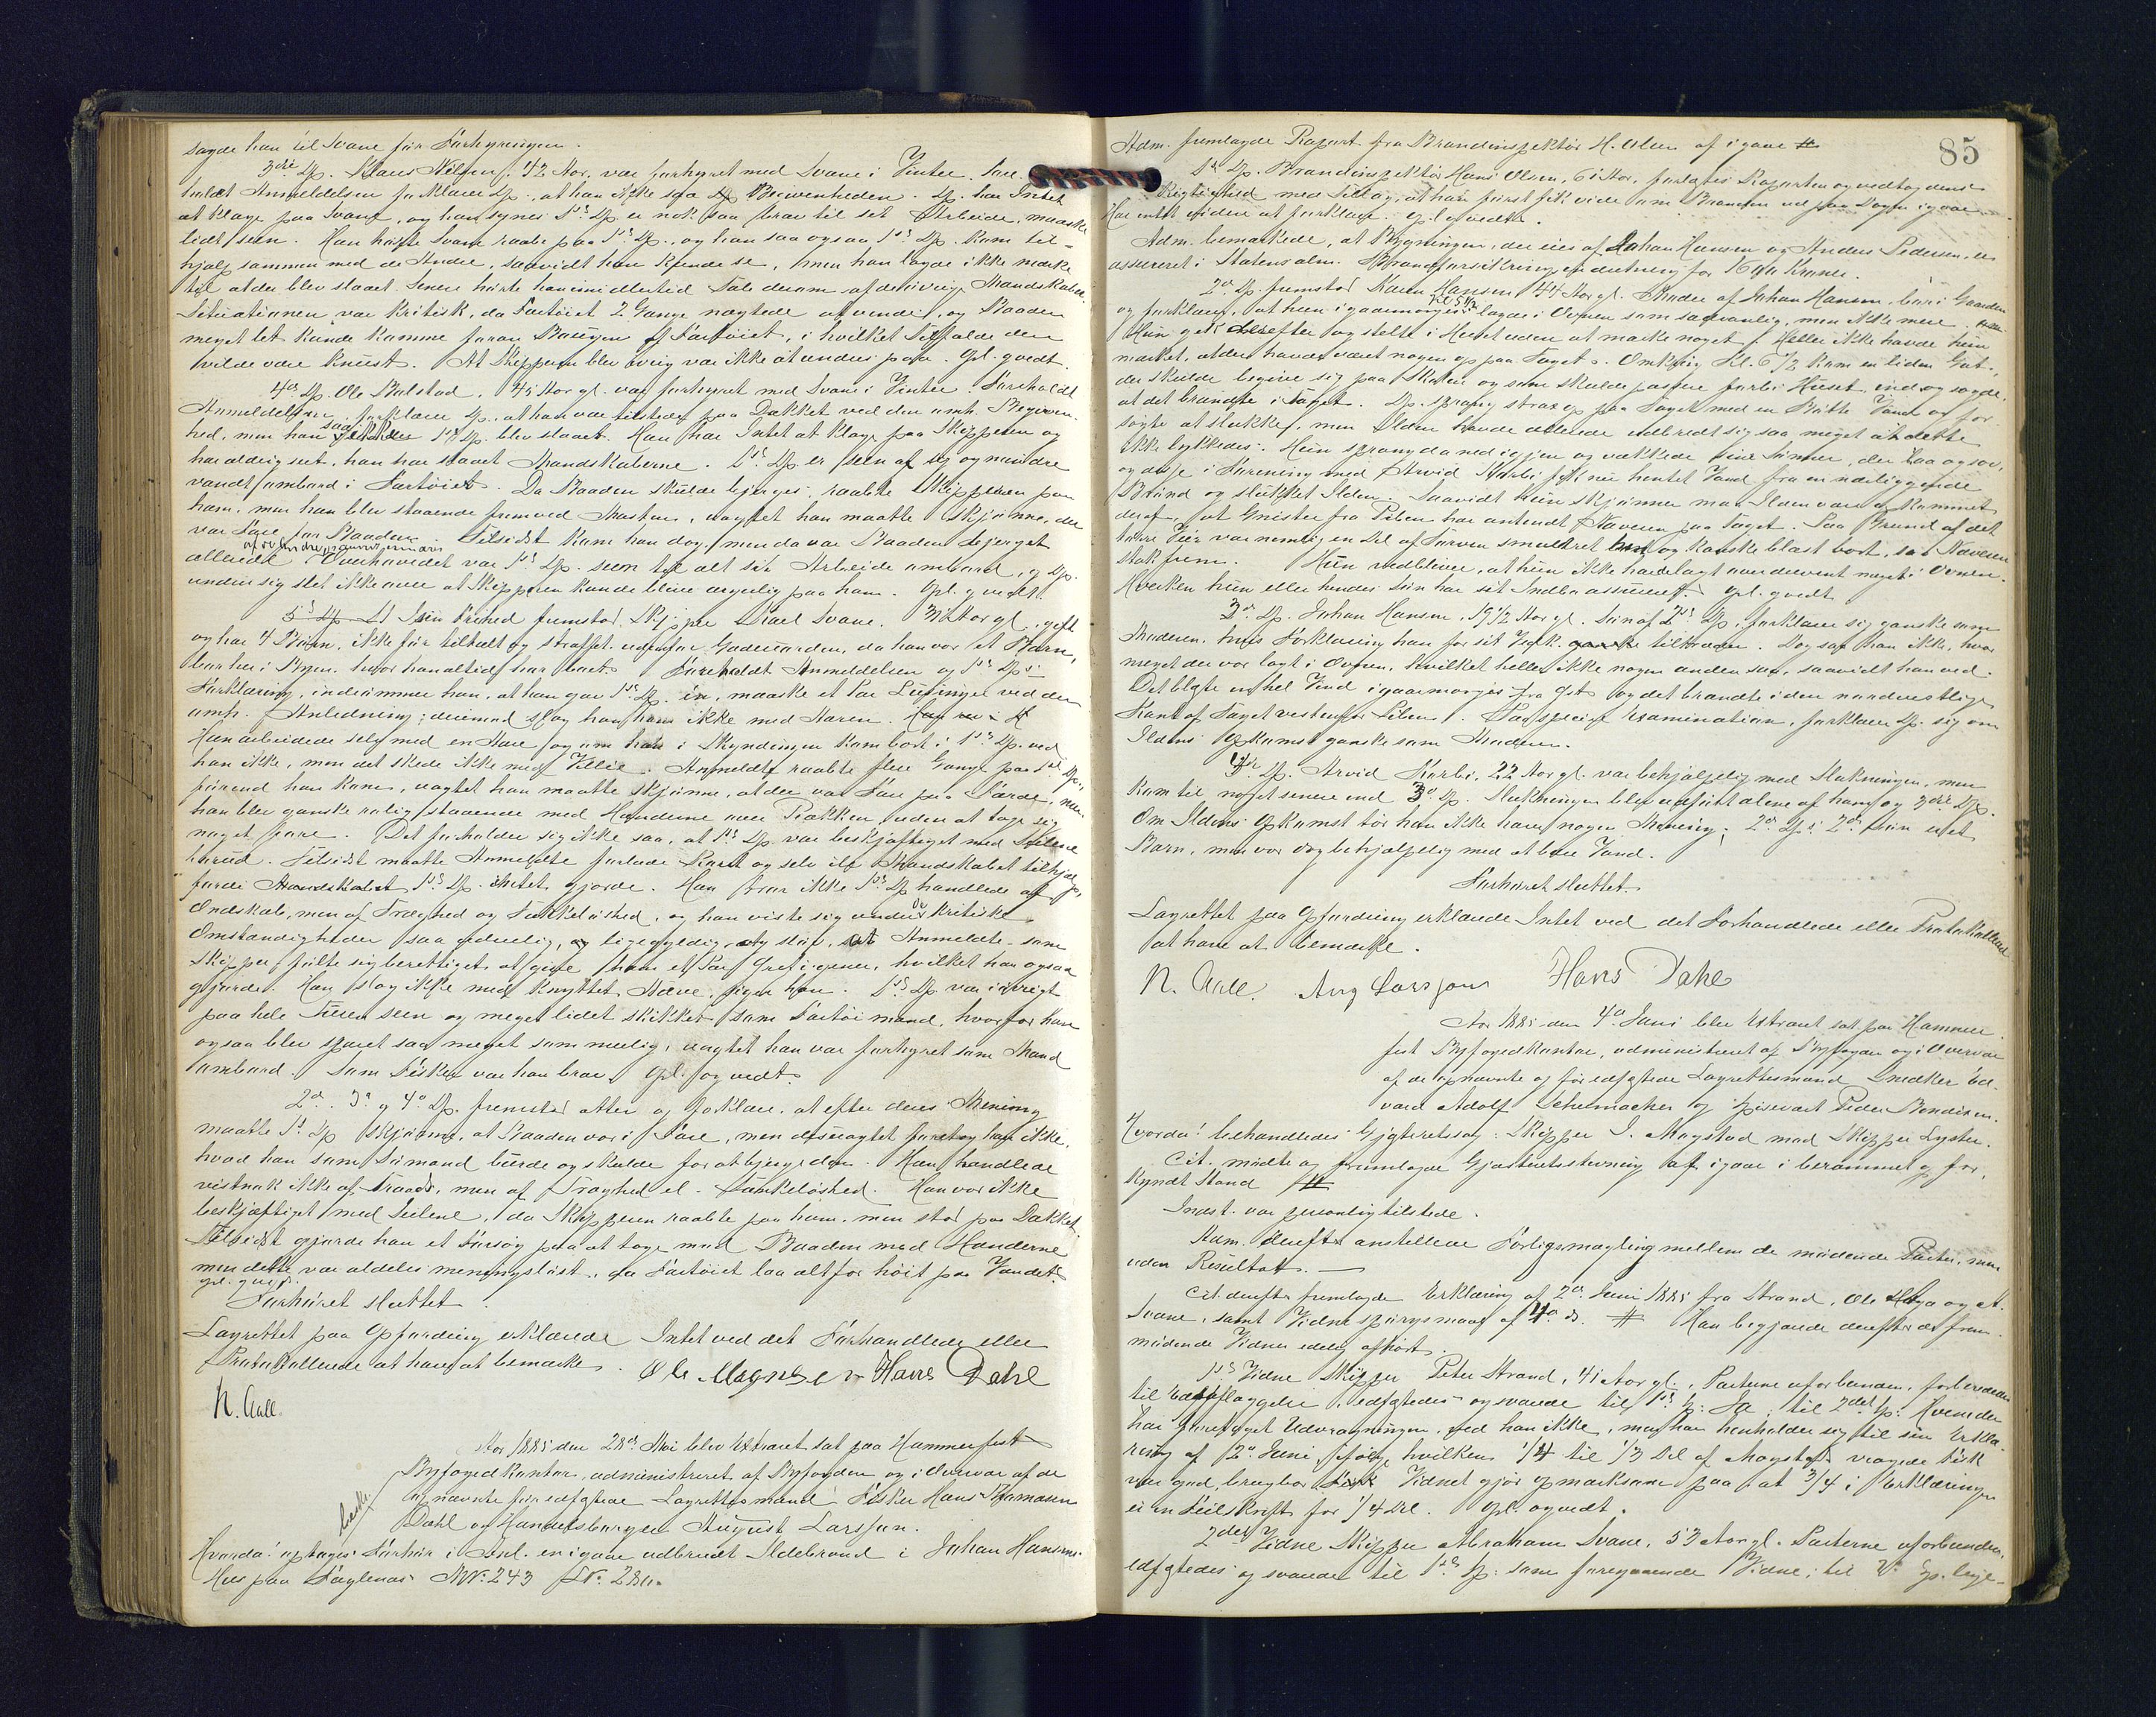 sagde han til Svane før Forhyringen.
3die Dp. Klaus Nilsen, 42 Aar, var forhyret med Svane i Vinter. Fore-
holdt Anmeldelsen forklarer Dp., at han ikke saa Begivenheden. Dp. har Intet
at klage paa Svane, og han synes 1ste Dp. er nok saa brav til sit Arbeide, maaske
lidt seen. Han hørte Svane raabe paa 1ste Dp., og han saa ogsaa 1ste Dp. kom til-
hjælp sammen med de Andre, saavidt han kjendte se, men han lagde ikke mærke
til at der blev slaaet. Senere hørte han imidlertid Tale derom af de øvrige Mandskaber.
Situationen var kritisk, da Fartøiet 2 Gange nægtede at vende, og Baaden
meget let kunde komme foran Baugen af Fartøiet, i hvilket Tilfælde den
vilde være knust. At Skipperen blev ivrig var ikke at undres paa. Opl. gvedt.
4de Dp. Ole Balstad, 45 Aar gl. var forhyret med Svane i Vinter. Foreholdt
Anmeldelsen forklarer Dp., at han var tilstede paa Dækket ved den omh. Begiven-
hed, men han saa ikke 1ste Dp. blev slaaet. Han har Intet at klage paa Skipperen og
har aldrig seet, han har slaaet Mandskaberne. 1ste Dp. er seen af sig og mindre
vandt ombord i Fartøier. Da Baaden skulde bjerges, raabte Skipperen paa
ham, men han blev staaende fremved Masten, uagtet han maatte skjønne, der
var Fare for Baaden. Tilsidst kom han dog, men da var Baaden bjerget
allerede af de andre Overhovedet var 1ste Dp. seen til alt sit Arbeide ombord, og Dp.
undrer sig slet ikke over at Skipperen kunde blive ærgerlig paa ham. Opl. gvedt.
5te Dp. I sin Frihed fremstod Skipper Karl Svane, 31 Aar gl., gift
og har 4 Børn, ikke før tiltalt og straffet udenfor Gadeuorden, da han var et Barn,
boer her i Byen, hvor han altid har boet. Foreholdt Anmeldelsen og 1ste Dp's
Forklaring, indrømmer han, at han gav 1ste Dp. en, maaske et Par Lusinger ved den
omh. Anledning; derimod slog han ham ikke med Aaren.
Han arbeidede selv med en Aare, og om han i Skyndingen kom bort i 1ste Dp. ved
han ikke, men det skede ikke med Villie. Anmeldte raabte flere Gange paa 1ste Dp.,
førend han kom, uagtet han maatte skjønne, at der var Fare paa Færde, men
han blev ganske rolig staaende med Hænderne over Trækken, uden at tage sig
noget fore. Det forholder sig ikke saa, at 1ste Dp. var beskjæftiget med Seilene
forud. Tilsidst maatte Anmeldte forlade Roret og selv ile Mandskabet tilhjælp,
fordi Mandskabet 1ste Dp. intet gjorde. Han tror ikke 1ste Dp. handlede af
Ondskab, men af Træghed og Tankeløshed, og han viste sig under de kritiske
Omstændigheder saa gduelig, og ligegyldig og sløv, at Anmeldte som
Skipper følte sig berettiget at give ham et Par Ørefigener, hvilket han ogsaa
gjorde. Han slog ikke med knyttet Næve, siger han. 1ste Dp. var iøvrigt
paa hele Turen seen og meget lidet skikket som Fartøimand, hvorfor han
ogsaa blev sparet saa meget som mulig, uagtet han var forhyret som Mand
ombord. Som Fisker var han brav. Opl. og vedt.
2de, 3de og 4de Dp. fremstod atter og forklare, at efter deres Mening
maatte 1ste Dp. skjønne, at Baaden var i Fare, men desuagtet foretog han ikke,
hvad han som Sømand burde og skulde for at bjerge den. Han handlede
vistnok ikke af Traads, men af Træghed el. Tankeløshed. Han var ikke
beskjæftiget med Seilene, da Skipperen raabte paa ham, men stod paa Dækket.
Tilsidst gjorde han et Forsøg paa at tage mod Baaden med Hænderne
men dette var aldeles meningsløst, da Fartøiet laa altfor høit paa Vandet.
Opl. gvedt.
Forhøret sluttet.
Lagrettet paa Opfordring erklærede Intet ved det Forhandlede eller
Protokollerede at have at bemærke.
Ole Magnsen Hans Dahl
N. Aall.
Aar 1885 den 28de Mai blev Extraret sat paa Hammerfest
Byfogedkontor, administreret af Byfogden og i Overvær af de
opnævnte før edfæstede Lagrettesmænd: Fisker Hans Thomasen
Dahl og Handelsborger August Larsson.
Hvorda: optages Forhør i Anl. en igaar udbrudt Ildebrand i Johan Hansens
Hus paa Fuglenæs MN: 243 LN: 280.
85
Adm. fremlagde Rapport fra Brandinspektør H. Olsen af igaar #
1ste Dp. Brandinspektør Hans Olsen, 61 Aar, forlæstes Rapporten og vedtog dens
Rigtighed med Tillæg, at han først fik vide om Branden ud paa Dagen igaar.
Har intet videre at forklare. Opl. og vedt.
Adm. bemærkede, at Bygningen, der eies af Johan Hansen og Anders Pedersen, er
assureret i Statens alm. Brandforsikringsindretning for 1600 Kroner.
2de Dp. fremstod Karen Hansen 44 Aar gl. Moder af Johan Hansen, boer i Gaarden
og forklarer, at hun igaarmorges kl. 5 1/2 lagde i Ovnen som sædvanlig, men ikke mere.
Hun gik derefter og stelte i Huset uden at mærke noget. Heller ikke havde hun
mærket, at der havde været nogen op paa Taget. Omkring Kl. 6 1/2 kom en liden Gut,
der skulde begive sig paa Skolen og som skulde passere forbi Huset, ind og sagde,
at det brændte i Taget. Dp. sprang strax op paa Taget med en Bøtte Vand og for-
søgte at slukke, men Ilden havde allerede udbredt sig saa meget at dette
ikke lykkedes. Hun sprang da ned igjen og vækkede sine Sønner, der laa og sov,
og disse i Forening med Arvid Karbi fik nu hentet Vand fra en nærliggende
Brønd og slukket Ilden. Saavidt hun skjønner maa Ilden være opkommet
deraf, at Gnister fra Piben har antændt Næveren paa Taget. Paa Grund af det
tørre Veir var nemlig en Del af Torven smuldret og kanske blæst bort, saa Næveren
stak frem. Hun vedbliver, at hun ikke havde lagt overdrevent meget i Ovnen.
Hverken hun eller hendes Søn har sit Indbo assureret. Opl. gvedt.
3de Dp. Johan Hansen, 19 1/2 Aar gl. Søn af 2de Dp., forklarer sig ganske som
Moderen, hvis Forklaring han for sit Vedk. tiltræder. Dog saa han ikke, hvor
meget der var lagt i Ovnen, hvilket heller ikke nogen anden saa, saavidt han ved.
Det blæste en hel Vind igaarmorges fra Øst og det brændte i den nordøstlige
Kant af Taget vestenfor Piben. Paa speciel Examination, forklarer Dp. sig om
Ildens Opkomst ganske som Moderen.
4de Dp. Arvid Karbi, 22 Aar gl. var behjælpelig med Slukningen, men
kom til noget senere end 3de Dp. Slukningen blev udført alene af ham og 3die Dp.
Om Ildens Opkomst tør han ikke have nogen Mening; 2de Dp's 2den Søn er et
Barn, men var dog behjælpelig med at bære Vand.
Forhøret sluttet.
Lagrettet paa Opfordring erklærede Intet ved det Forhandlede eller Protokollerede
at have at bemærke.
N. Aall. Aug Larsson Hans Dahl
Aar 1885 den 4de Juni blev Extraret sat paa Hammer-
fest Byfogedkontor, administreret af Byfogden og i Overvær
af de opnævnte og før edfæstede Lagrettesmænd Snedker Ed-
vard Adolf Schumacher og Spisevært Peder Bendixen.
Hvorda: behandledes Gjæsteretssag: Skipper J. Magstad mod Skipper Lyster.
Cit. mødte og fremlagde Gjæsteretsstevning af igaar i berammet og for-
kyndt Stand #
Indst. var personlig tilstede.
Adm. derefter anstillede Forligsmægling mellem de mødende Parter, men
uden Resultat. —
Cit. derefter fremlagde Erklæring af 2de Juni 1885 fra Strand, Ole Haga og A.
Svane, samt Vidnespørgsmaal af 4de ds. # Han begjærede derefter de frem-
mødende Vidner edelig afhørt.
1ste Vidne Skipper Peter Strand, 41 Aar gl., Parterne uforbunden, forberedes
til Edsaflæggelse, edfæstedes og svarede til 1ste Sp: Ja; til 2det Sp: Hvem der
har foretaget Udvragningen, ved han ikke, men han henholder sig til sin Erklæ-
ring af 2de Juni, ifølge hvilken 1/4 til 1/3 Del af Magstads vragede Fisk
var god, brugbar Fisk. Vidnet gjør opmærksom paa, at 3/4 i Erklæringen
er en Feilskrift for 1/4 Del. Opl. og vedt.
2det Vidne Skipper Abraham Svane, 53 Aar gl. Parterne uforbunden,
edfæstedes og svarede til 1ste Sp: som foregaaende Vidne; til 2det Sp.